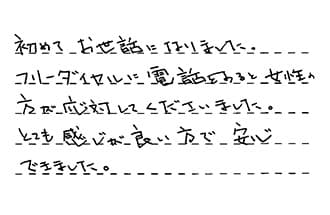 初めて お世話になりました。
フリーダイヤルに電話をすると女性の
方が応対してくださいました。
とても感じが良い方で 安心
できました。